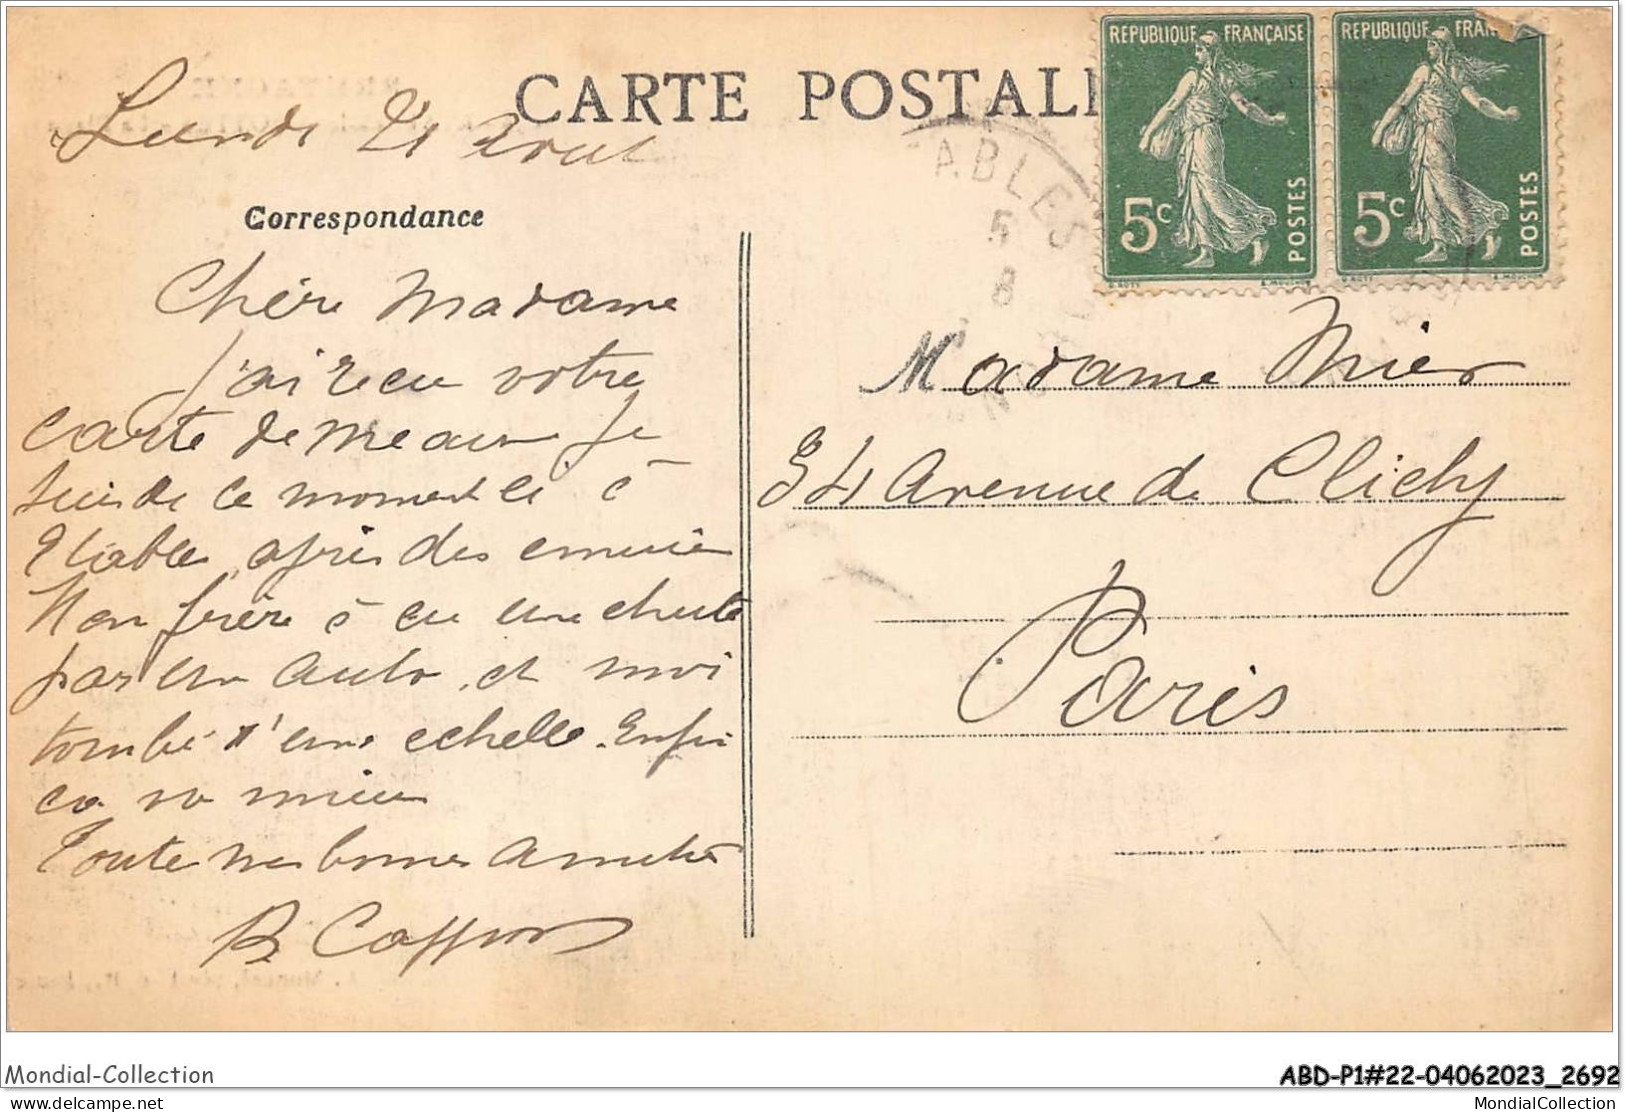 CARTE POSTAL
Lundi 21 Aout
Correspondance
Chère Madame
j'ai reçu votre
carte de Meaux Je
suis de ce moment ci à
Etables, après des ennuis
Mon frère à eu une chute
par un auto, et moi
tombé d'une echelle. Enfin
ça va mieux
Toute mes bonnes Amitiés
B. Coffron
REPUBLIQUE FRANÇAISE
5c POSTES
REPUBLIQUE FRAN
5c POSTES
ABLES
5
8
NORD
Madame Mier
34 Avenue de Clichy
Paris
Mondial-Collection
ABD-P1#22-04062023_2692
www.delcampe.net
MondialCollection